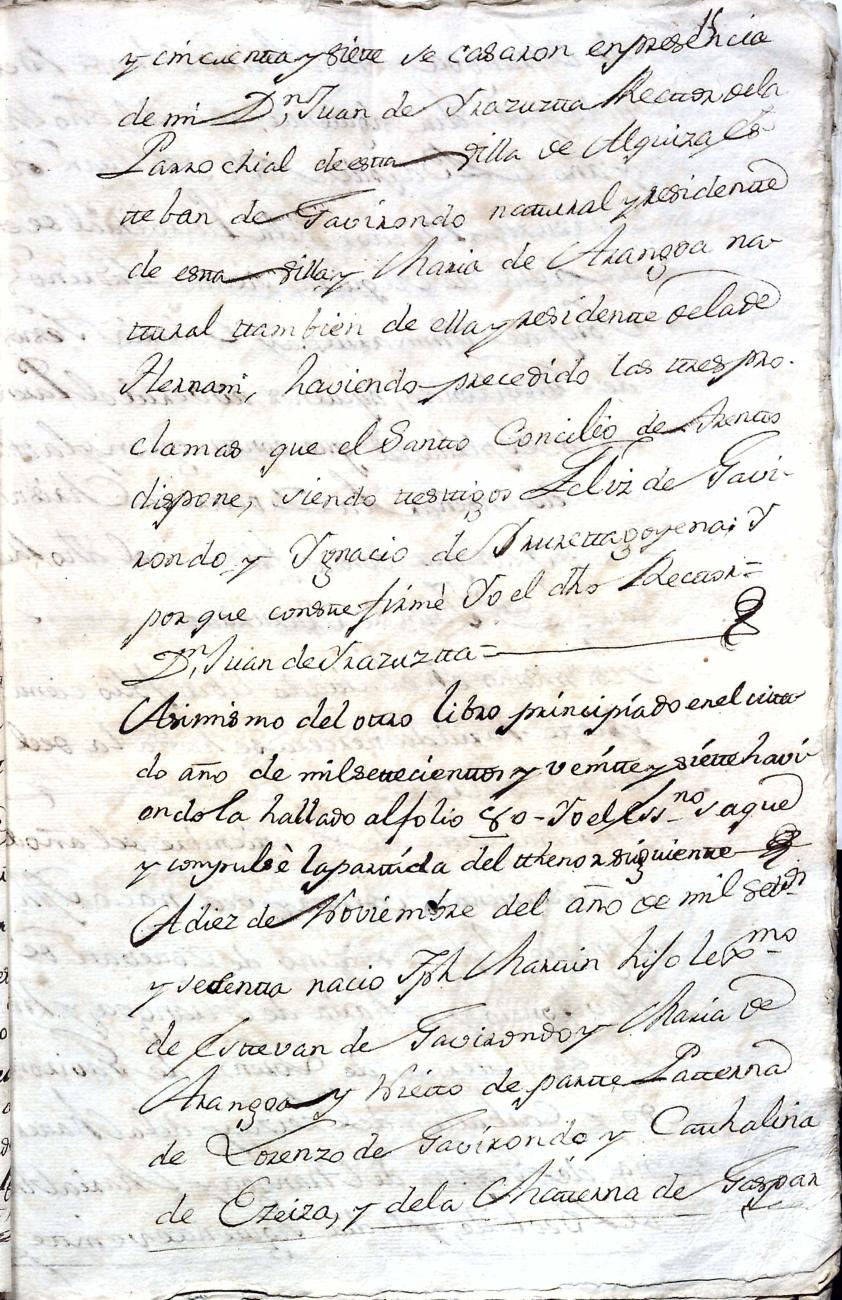 15
y cincuentta y siette se casaron en presencia
de mi Dn Juan de Yrazuztta Recttor de la
Parrochial de estta Villa de Alquiza Es
tteban de Gavirondo natural y residentte
de estta Villa, y Maria de Arangoa na-
ttural ttambien de ella y residentte de la de
Hernani, haviendo precedido las ttres pro-
clamas que el Santto Concilio de Trentto
dispone, siendo testtigos Feliz de Gavi-
rondo, y Ygnacio de Yrurettagoyena; Y
por que constte firmè Yo el dho Recttor=
Dn Juan de Yrazuztta=
Asimismo del ottro libro principiado en el citta
do año de mil settecienttos y veintte y siette havi
endola hallado al folio 80 - Yo el Essno saquè
y compulsè la parttida del tthenor siguientte
A diez de Noviembre del año de mil settos
y sesentta nacio Jph Marttin hijo lexmo
de Esttevan de Gavirondo y Maria de
Arangoa y Nietto de partte Patterna
de Lorenzo de Gavirondo y Catthalina
de Ezeiza, y de la Matterna de Gaspar